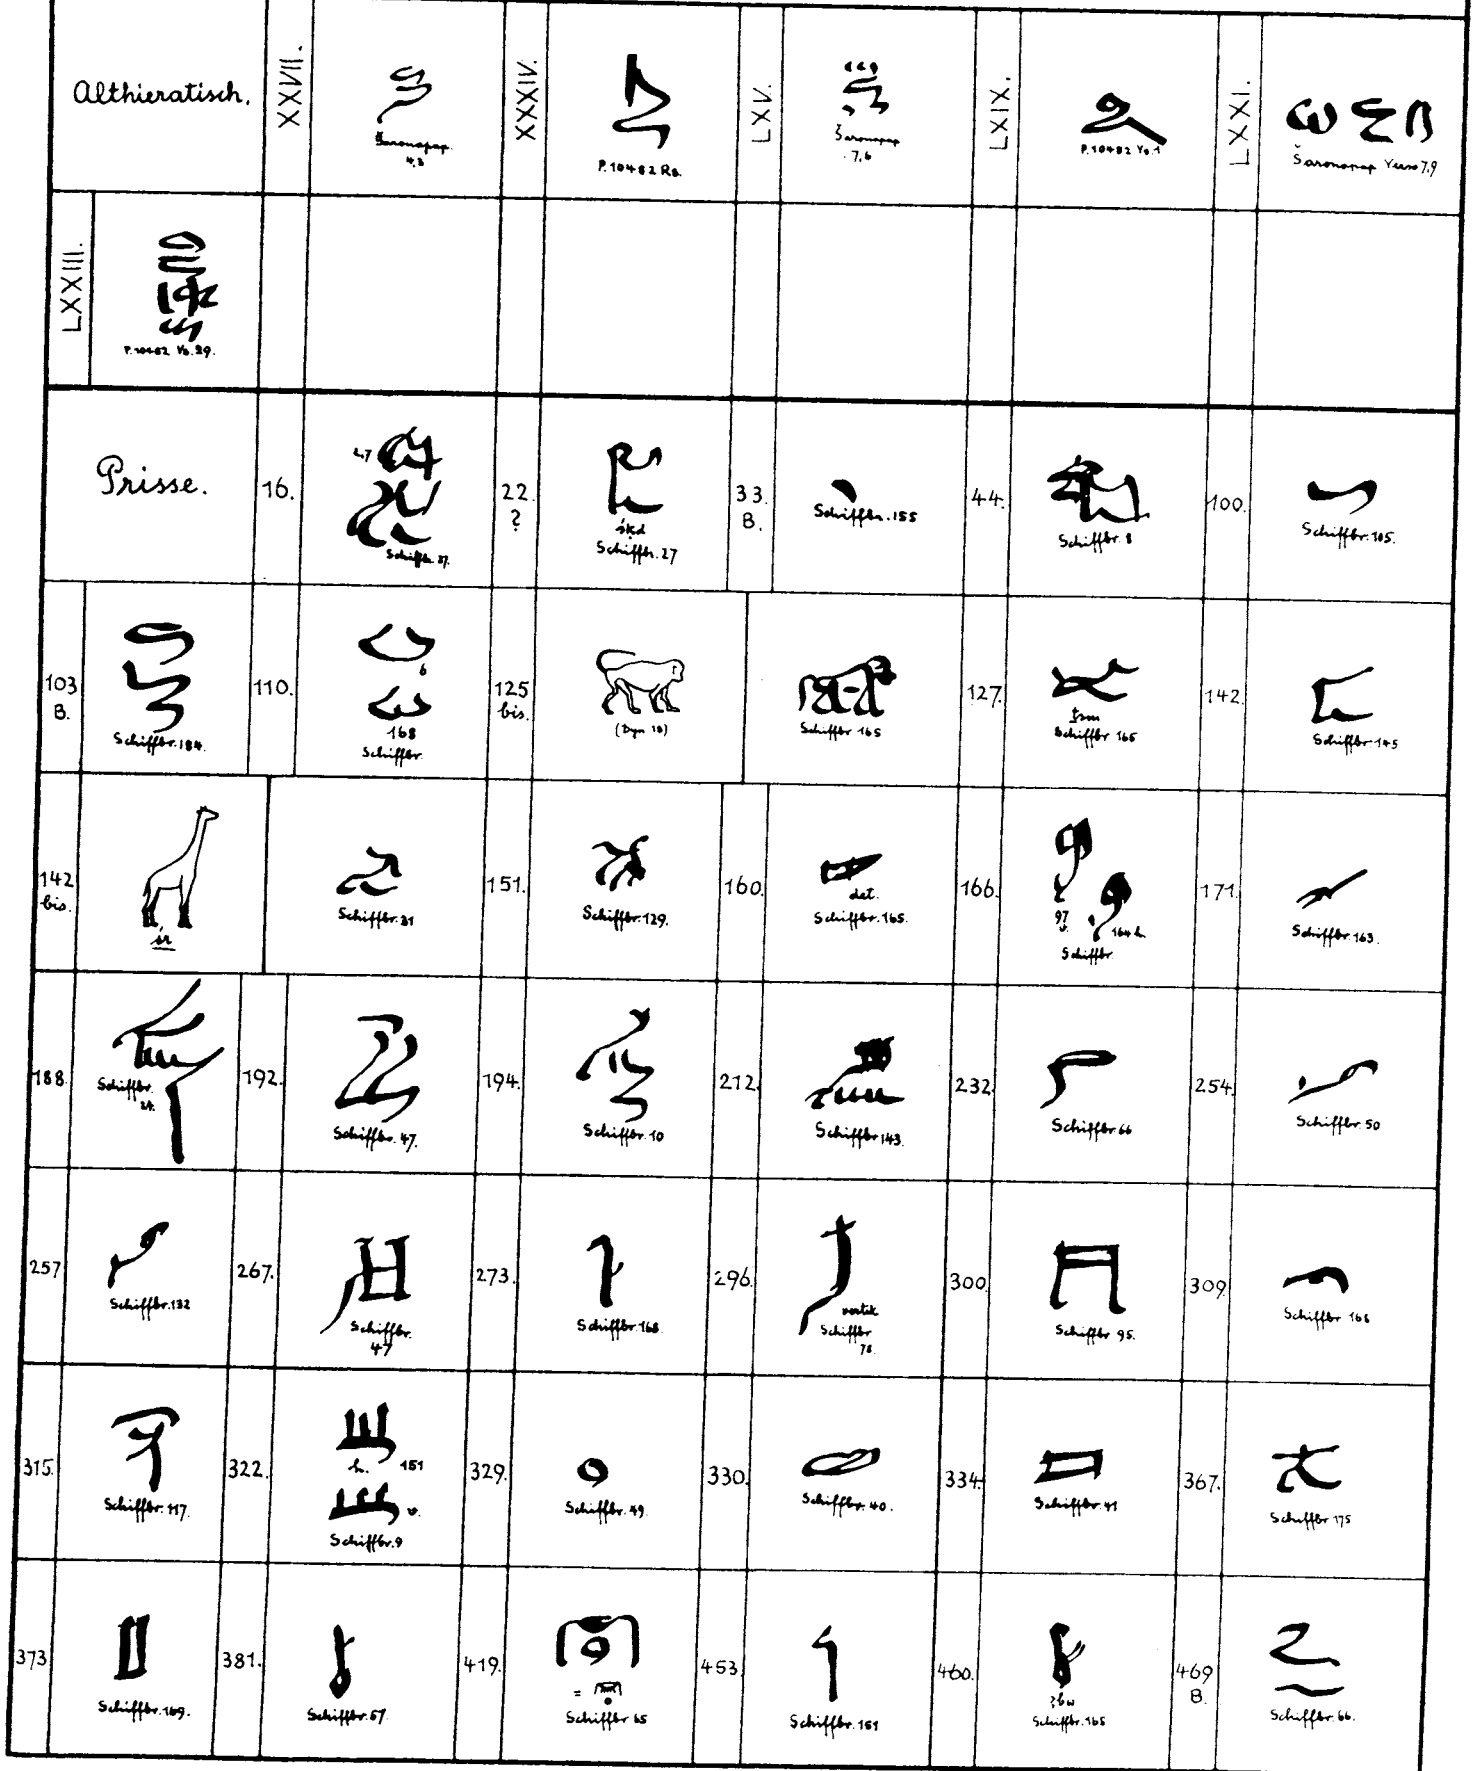 Althieratisch.
XXVII.
4,3
XXXIV.
P. 10482 Ro.
LXV.
7,6
LXIX.
P. 10482 Vo. 1
LXXI.
Šaronapap Verso 7,9
LXXIII.
P. 10482 Vo. 29.
Prisse.
16.
2,7
Schiffbr. 37.
22
?
śḳd
Schiffbr. 27
33.
B.
Schiffbr. 155
44.
Schiffbr 8
100.
Schiffbr. 105.
103
B.
Schiffbr. 184.
110.
6
168
Schiffbr.
125
bis.
(Dyn 18)
Schiffbr 165
127.
Schiffbr 165
142.
Schiffbr 145
142
bis.
śr
Schiffbr. 31
151.
Schiffbr. 129.
160.
det.
Schiffbr. 165.
166.
97
v.
164 h.
Schiffbr
171.
Schiffbr. 163.
188.
Schiffbr.
24.
192.
Schiffbr. 47.
194.
Schiffbr. 10
212.
Schiffbr 143.
232.
Schiffbr 66
254.
Schiffbr. 50
257
Schiffbr. 132
267.
Schiffbr.
47
273.
Schiffbr. 168.
296.
vertik
Schiffbr
78.
300.
Schiffbr 95.
309.
Schiffbr 166
315.
Schiffbr. 117.
322.
h. 151
v.
Schiffbr. 9
329.
Schiffbr. 49.
330.
Schiffbr. 40.
334.
Schiffbr. 41
367.
Schiffbr 175
373
Schiffbr. 169.
381.
Schiffbr. 57
419.
=
Schiffbr 65
453.
Schiffbr. 151
460.
ꜣbw
Schiffbr. 165
469
B.
Schiffbr. 66.